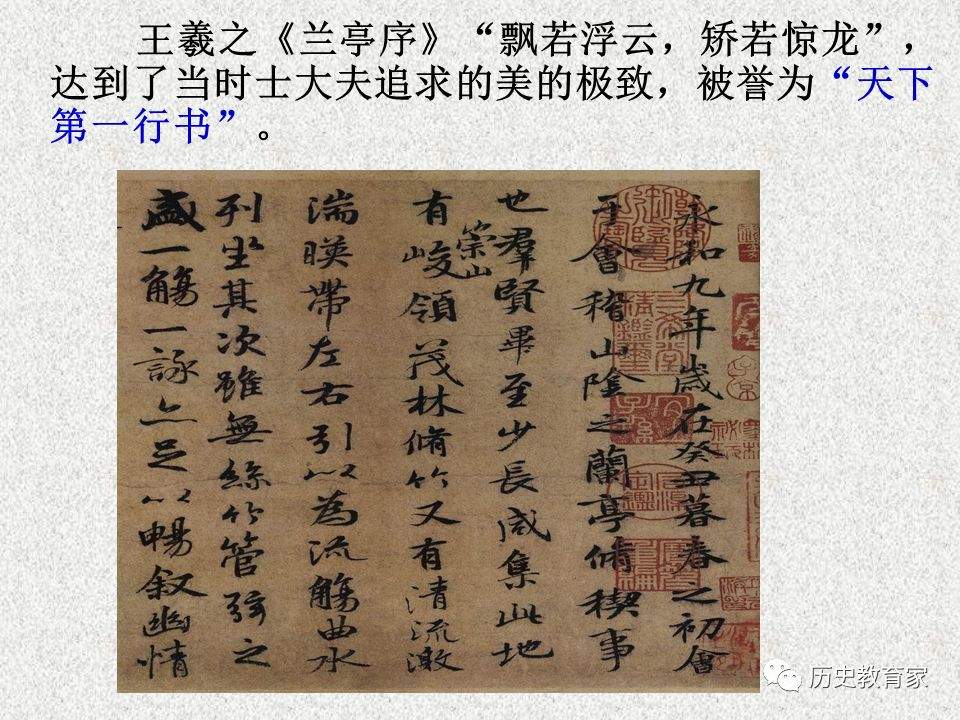 王羲之《兰亭序》“飘若浮云，矫若惊龙”，
达到了当时士大夫追求的美的极致，被誉为“天下
第一行书”。
永和九年歲在癸丑暮春之初會
于會稽山陰之蘭亭脩稧事
也羣賢畢至少長咸集此地
有崇山峻領茂林脩竹又有清流激
湍暎帶左右引以為流觴曲水
列坐其次雖無絲竹管弦之
盛一觴一詠亦足以暢叙幽情
历史教育家